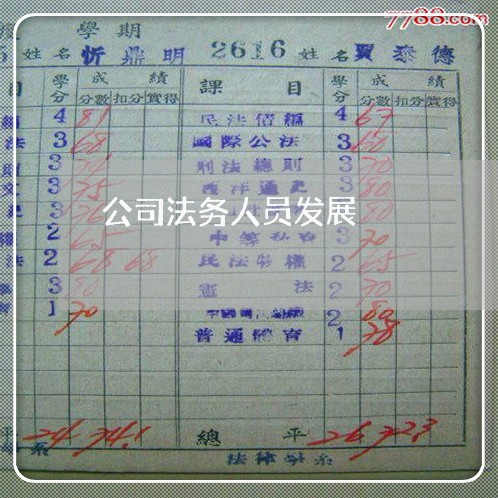 7788.com
學期
姓名 忻鼎明 2616 姓名 賈泰德
目 學分 成績 課目 學分 成績
分數 扣分 實得 分數 扣分 實得
4 81 民法債編 4 67
法 3 68 國際公法 3 60
3 刑法總則 3 70
3 75 西洋通史 3 80
3 80
2 65 3 70
法 2 68 68 民法物權 2 65
3 80 憲法 2 70
1 70 2 80
普通體育 1 78
公司法务人员发展
平 24 74.1 總平 26 72.3
系 法律學系